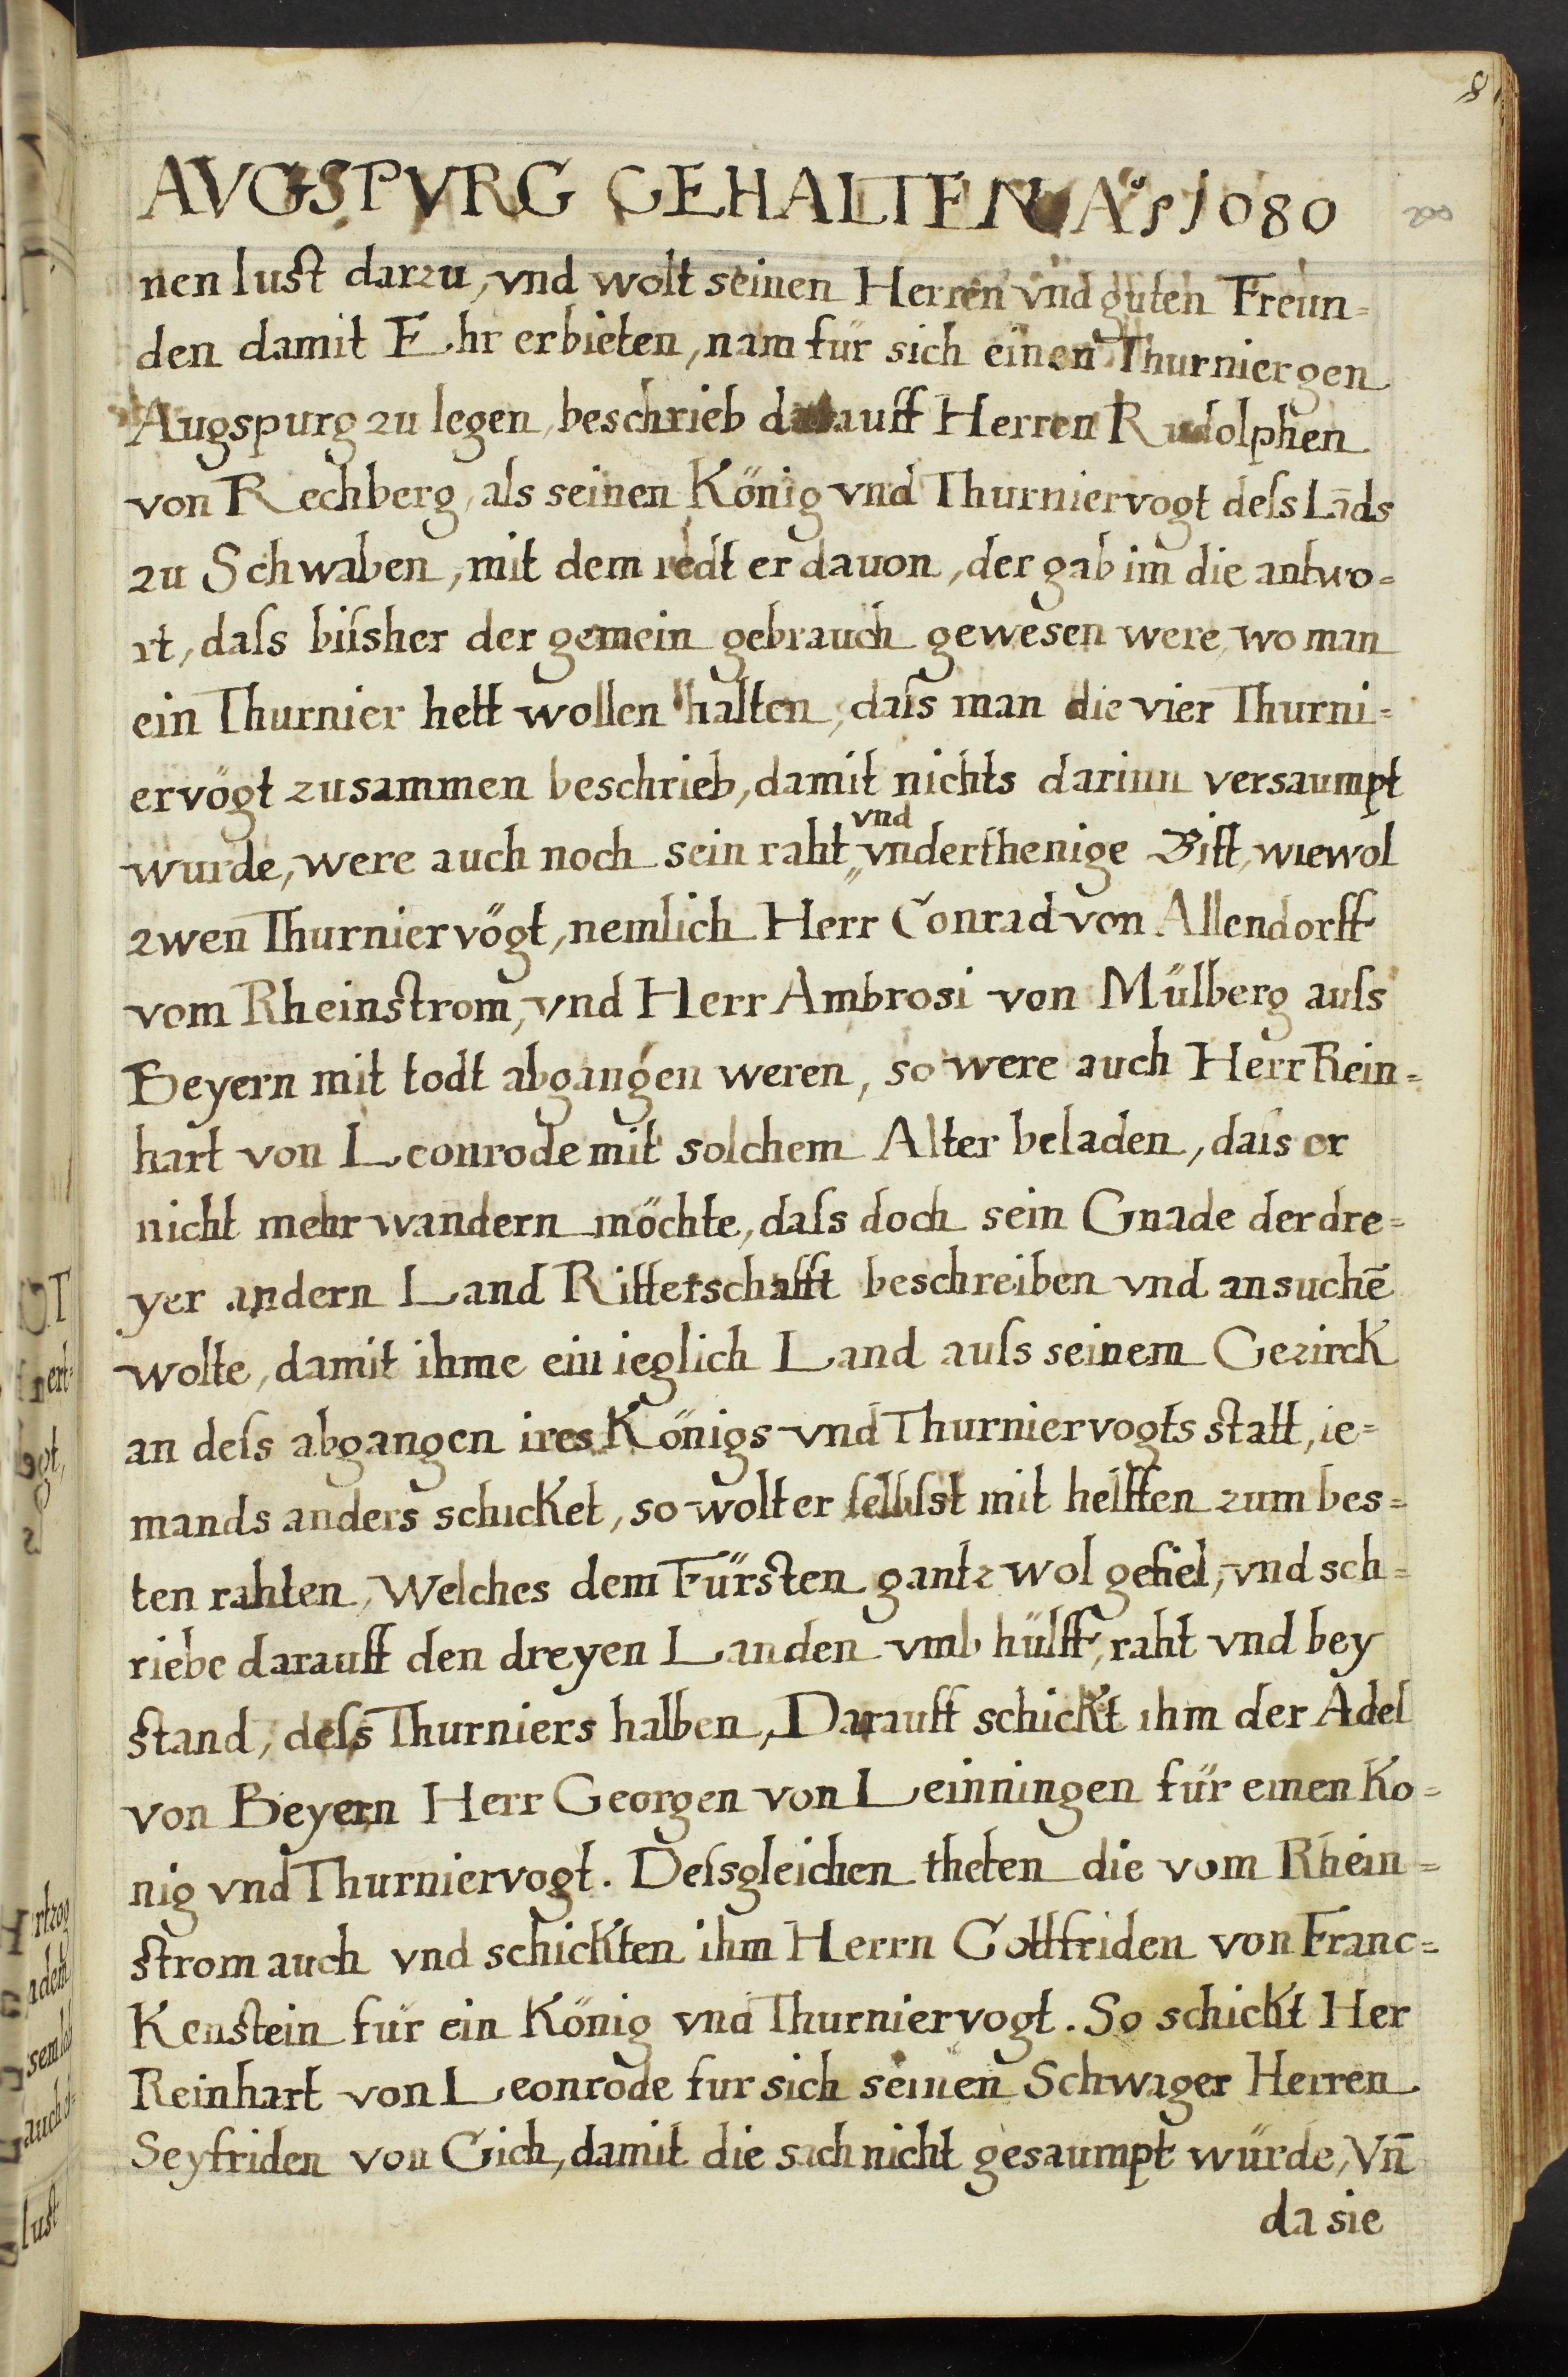 AVGSPVRG GEHALTEN A°. 1080
200
nen lust darzu, vnd wolt seinen Herren vnd guten Freun=
den damit Ehr erbieten, nam für sich einen Thurnier gen
Augspurg zu legen, beschrieb darauff Herren Rudolphen
von Rechberg, als seinen König vnd Thurniervogt deſs Lāds
zu Schwaben, mit dem redt er dauon, der gab im die antwo=
rt, daſs biſsher der gemein gebrauch gewesen were, wo man
ein Thurnier hett wollen halten, daſs man die vier Thurni=
ervögt zusammen beschrieb, damit nichts darinn versaumpt
wurde, were auch noch sein raht vnd vnderthenige Bitt, wiewol
zwen Thurniervögt, nemlich Herr Conrad von Allendorff
vom Rheinstrom, vnd Herr Ambrosi von Mülberg auſs
Beyern mit todt abgangen weren, so were auch Herr Rein=
hart von Leonrode mit solchem Alter beladen, daſs er
nicht mehr wandern möchte, daſs doch sein Gnade der dre=
yer andern Land Ritterschafft beschreiben vnd ansuchē
wolte, damit ihme ein ieglich Land auſs seinem Gezirck
an deſs abgangen ires Königs vnd Thurniervogts statt, ie=
mands anders schicket, so wolt er selbſst mit helffen zum bes=
ten rahten, Welches dem Fürsten gantz wol gefiel, vnd sch=
riebe darauff den dreyen Landen vmb hülff, raht vnd bey
stand, deſs Thurniers halben, Darauff schickt ihm der Adel
von Beyern Herr Georgen von Leinningen für einen Ko=
nig vnd Thurniervogt. Deſsgleichen theten die vom Rhein=
strom auch vnd schickten ihm Herrn Gottfriden von Franc=
Kenstein für ein König vnd Thurniervogt. So schickt Her
Reinhart von Leonrode fur sich seinen Schwager Herren
Seyfriden von Gich, damit die sach nicht gesaumpt würde, Vn̄
da sie